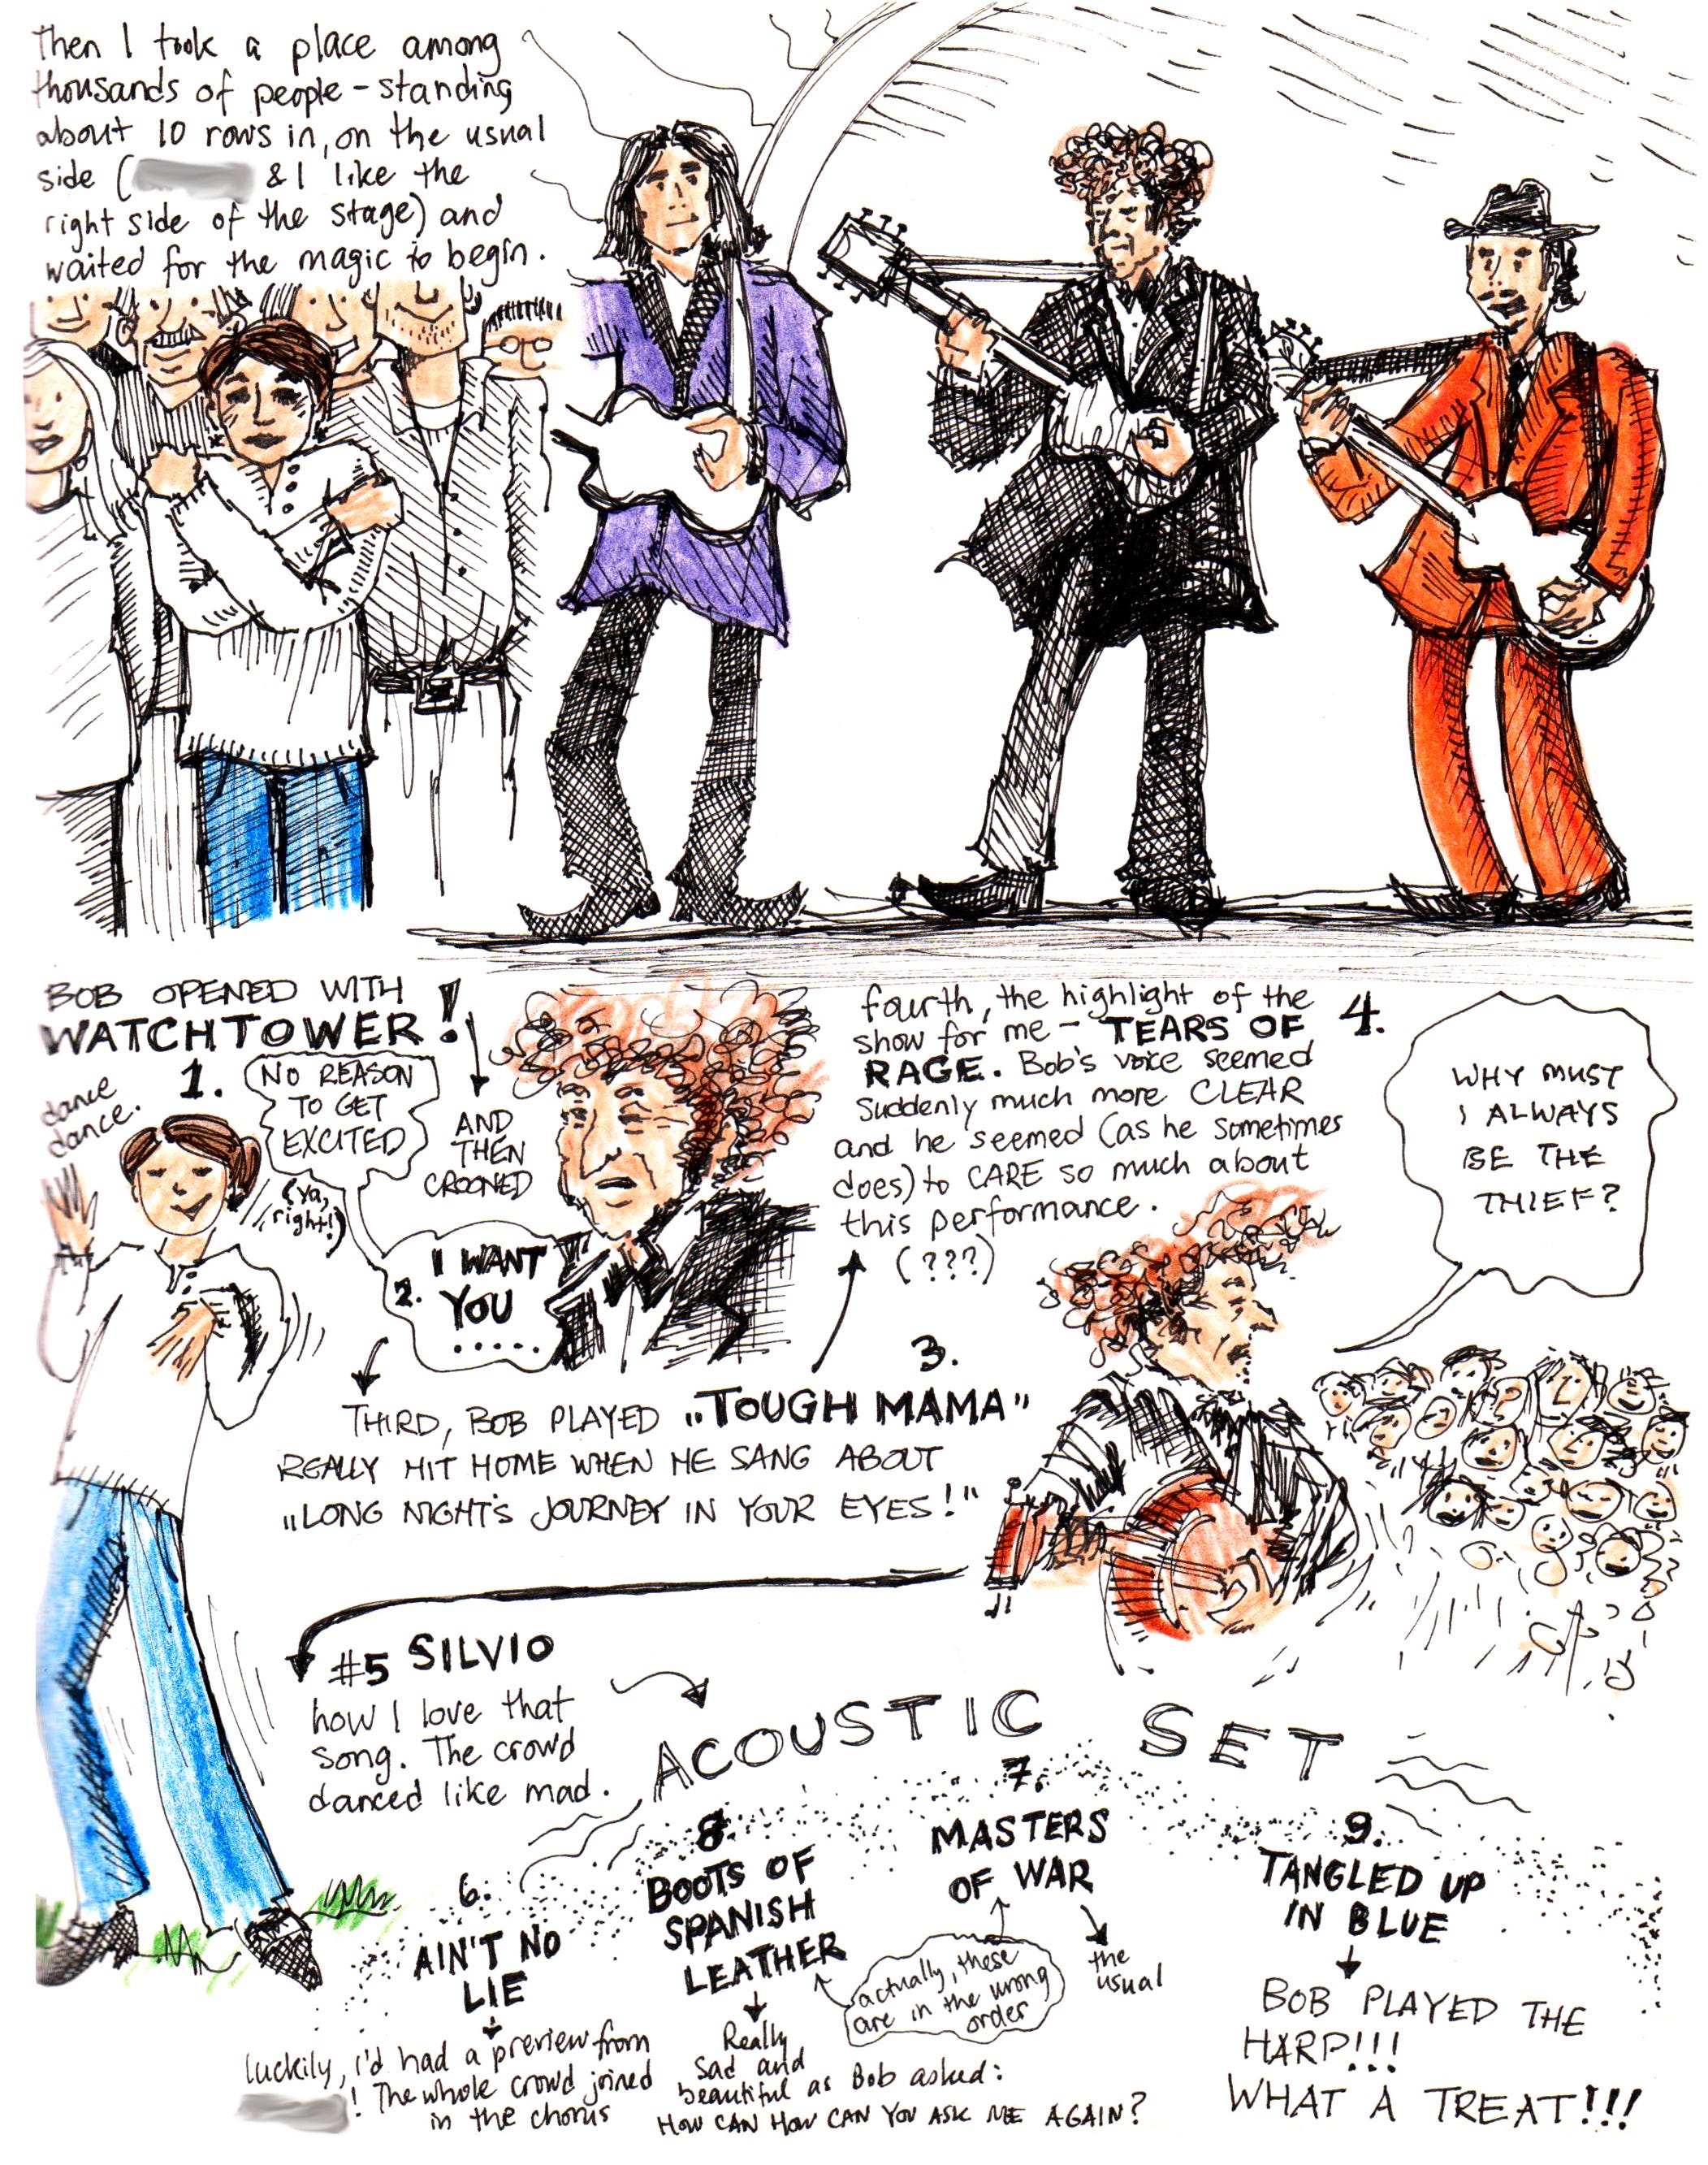 Then I took a place among
thousands of people - standing
about 10 rows in, on the usual
side ( & I like the
right side of the stage) and
waited for the magic to begin.
BOB OPENED WITH
WATCHTOWER!
1.
dance
dance.
NO REASON
TO GET
EXCITED
(ya,
right!)
AND
THEN
CROONED
2. I WANT
YOU
.....
3.
THIRD, BOB PLAYED „TOUGH MAMA"
REALLY HIT HOME WHEN HE SANG ABOUT
„LONG NIGHT'S JOURNEY IN YOUR EYES!"
4.
fourth, the highlight of the
show for me - TEARS OF
RAGE. Bob's voice seemed
suddenly much more CLEAR
and he seemed (as he sometimes
does) to CARE so much about
this performance.
(???)
WHY MUST
I ALWAYS
BE THE
THIEF?
#5 SILVIO
how I love that
song. The crowd
danced like mad.
ACOUSTIC SET
6.
AIN'T NO
LIE
luckily, i'd had a preview from
! The whole crowd joined
in the chorus
8.
BOOTS OF
SPANISH
LEATHER
Really
sad and
beautiful as Bob asked:
HOW CAN HOW CAN YOU ASK ME AGAIN?
7.
MASTERS
OF WAR
actually, these
are in the wrong
order
the
usual
9.
TANGLED UP
IN BLUE
BOB PLAYED THE
HARP!!!
WHAT A TREAT!!!